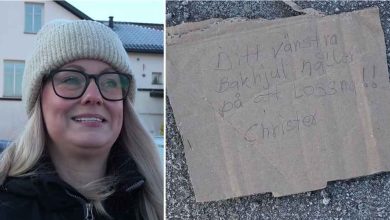 Ditt vänstra
Bakhjul håller
på att Lossna!!
Christer